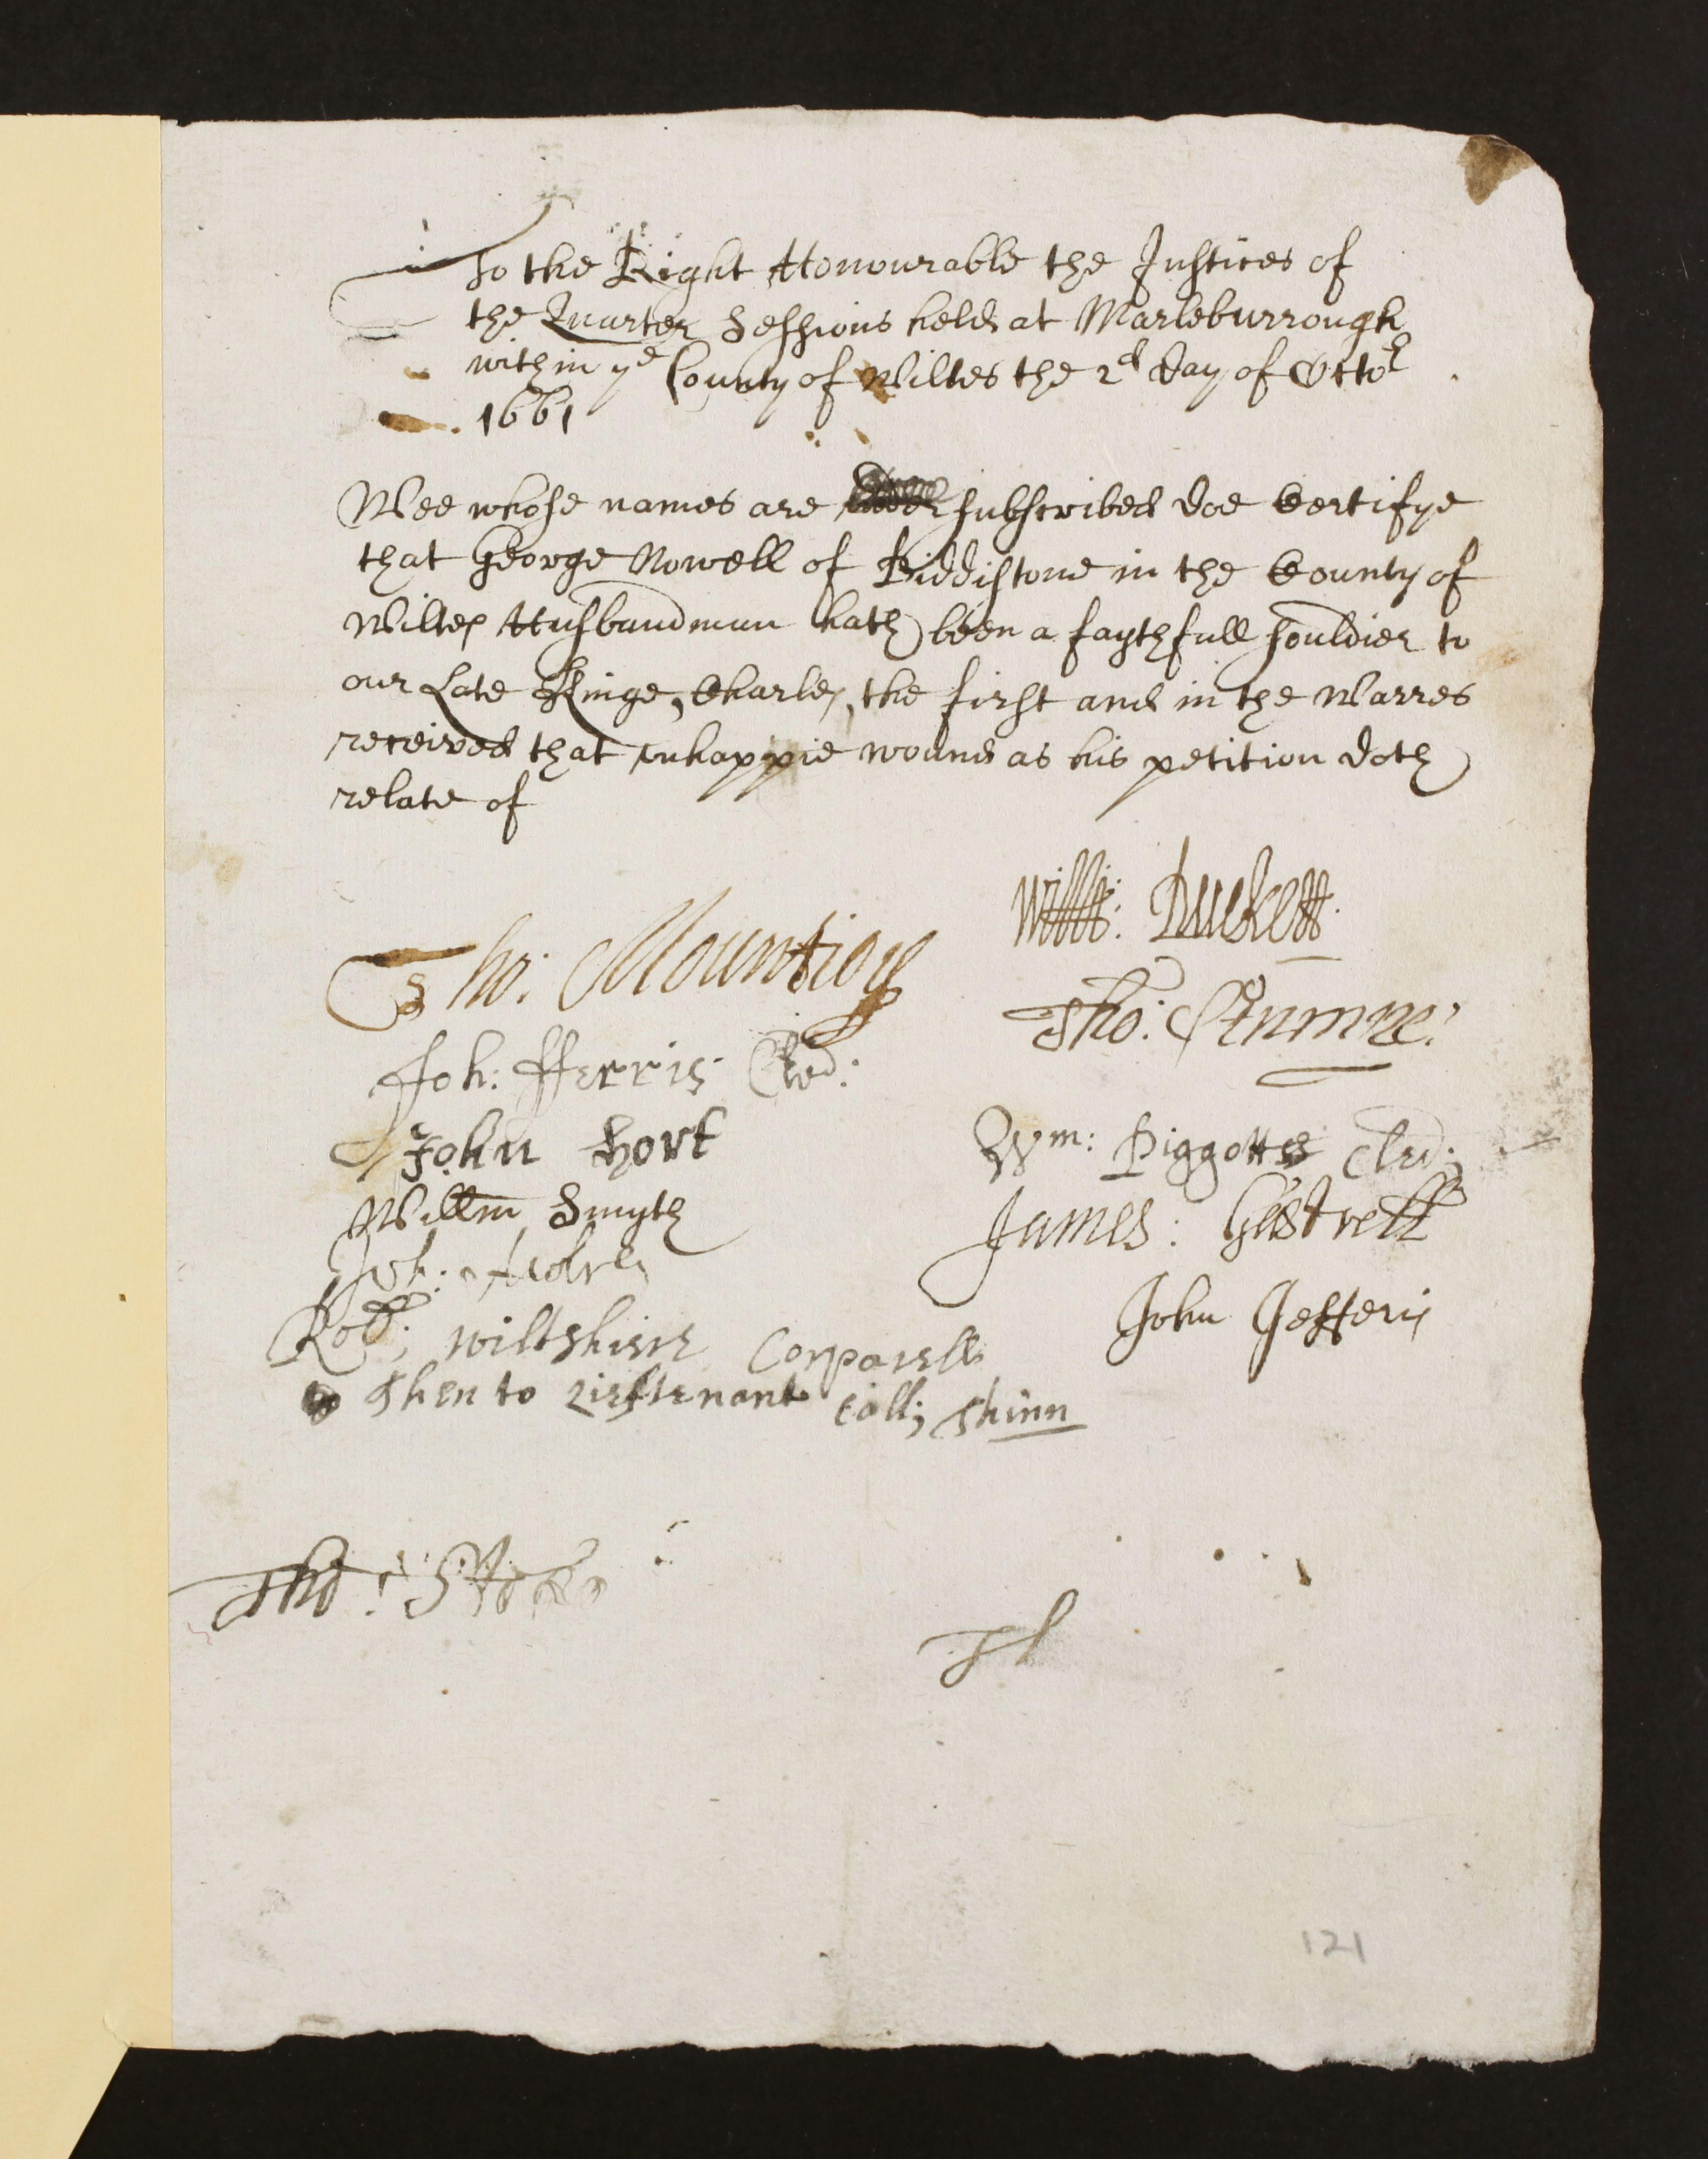 To the Right Honourable the Justices of
the Quarter Sessions held at Marleburrough
within ye County of Wiltes the 2d day of Octor
1661
Wee whose names are subscribed doe Certifye
that George Nowell of Biddistone in the County of
Wiltes Husbandman hath been a faythfull souldier to
our Late Kinge, Charles, the first and in the Warres
received that unhappie wound as his petition doth
relate of
Willm: Duckett.
Tho: Mountioy
Tho: Stumpe:
Joh: Fferris Cler:
John Hort
Wm: Piggotte Cler:
Willm Smyth
James: Gastrell
Joh:
John Jefferis
Rob: Wiltshiere Corparell
Then to Lieftenant Coll; Thinn
Tho: Stokes
Th
121